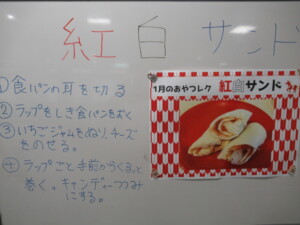 紅白サンド
①食パンの耳を切る
②ラップをしき食パンをおく
③いちごジャムをぬり、チーズ
をのせる。
④ラップごと手前からくるっと
巻く。キャンディーつつみ
にする。
1月のおやつレク 紅白サンド